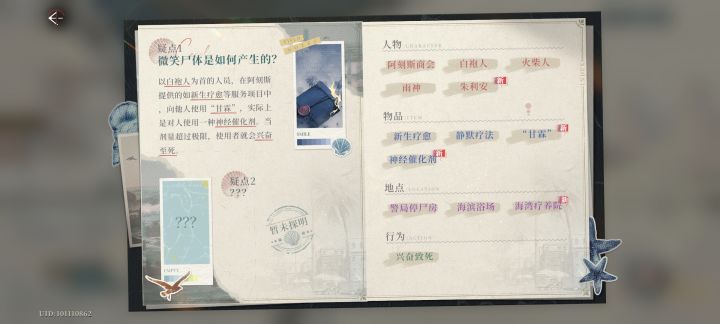 疑点1
微笑尸体是如何产生的?
以白袍人为首的人员,在阿刻斯
提供的如新生疗愈等服务项目中
,向他人使用“甘霖”,实际上
是对人使用一种神经催化剂。当
剂量超过极限,使用者就会兴奋
至死。
SMILE
疑点2
???
???
EMPTY
暂未探明
人物 CHARACTER
阿刻斯商会 白袍人 火柴人
雨神 朱利安 新
物品 ITEM
新生疗愈 静默疗法 “甘霖” 新
神经催化剂 新
地点 LOCATION
警局停尸房 海滨浴场 海湾疗养院 新
行为 ACTION
兴奋致死
UID:101110862